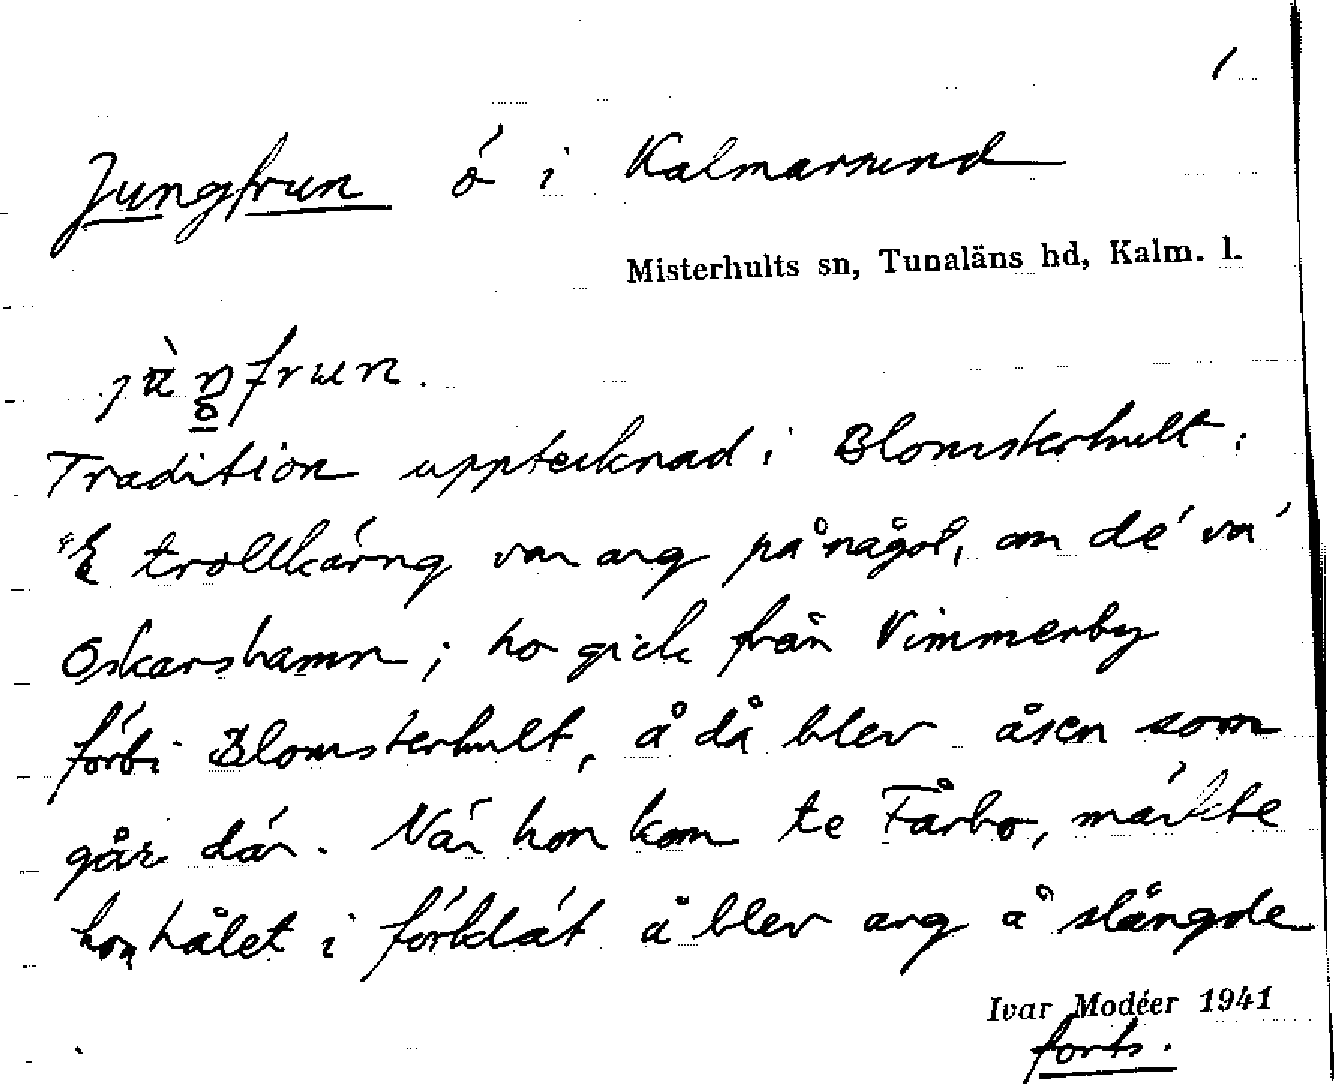 1
Jungfrun ö i Kalmarsund
Misterhults sn, Tunaläns hd, Kalm. l.
Tradition upptecknad i Blomsterhult:
"E trollkärng var arg på någol, om dé va'
Oskarshamn; ho gick från Vimmerby
förbi Blomsterhult, å då blev åsen som
går där. När hon kom te Fårbo, märkte
hon hålet i förklät å blev arg å slängde
Ivar Modéer 1941
forts.